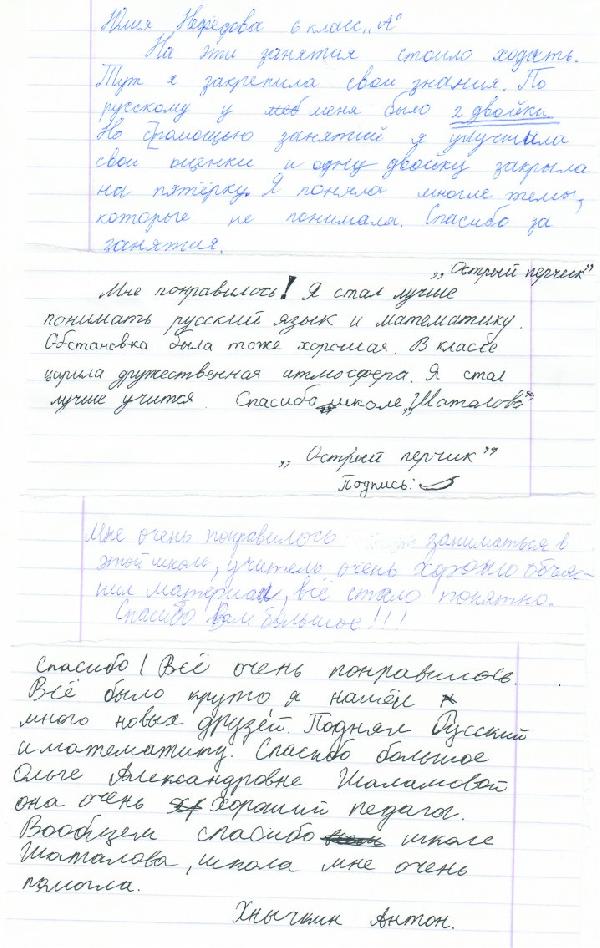 Юлия Нефёдова 6 класс „А"
На эти занятия стоило ходить.
Тут я закрепила свои знания. По
русскому у меня было 2 двойки.
Но с помощью занятий я улучшила
свои оценки и одну двойку закрыла
на пятёрку. Я поняла многие темы,
которые не понимала. Спасибо за
занятия.
„Острый перчик"
Мне понравилось! Я стал лучше
понимать русский язык и математику.
Обстановка была тоже хорошая. В классе
царила дружественная атмосфера. Я стал
лучше учится. Спасибо школе „Шаталова"
„Острый перчик"
Подпись:
Мне очень понравилось заниматься в
этой школе, учитель очень хорошо объяс-
нил материал, всё стало понятно.
Спасибо Вам большое!!!
Спасибо! Всё очень понравилось.
Всё было круто я нашёл
много новых друзей. Поднял Русский
и математику. Спасибо большое
Ольге Александровне Шаламовой
она очень хороший педагог.
Вообщем спасибо школе
Шаталова, школа мне очень
помогла.
Хнычкин Антон.